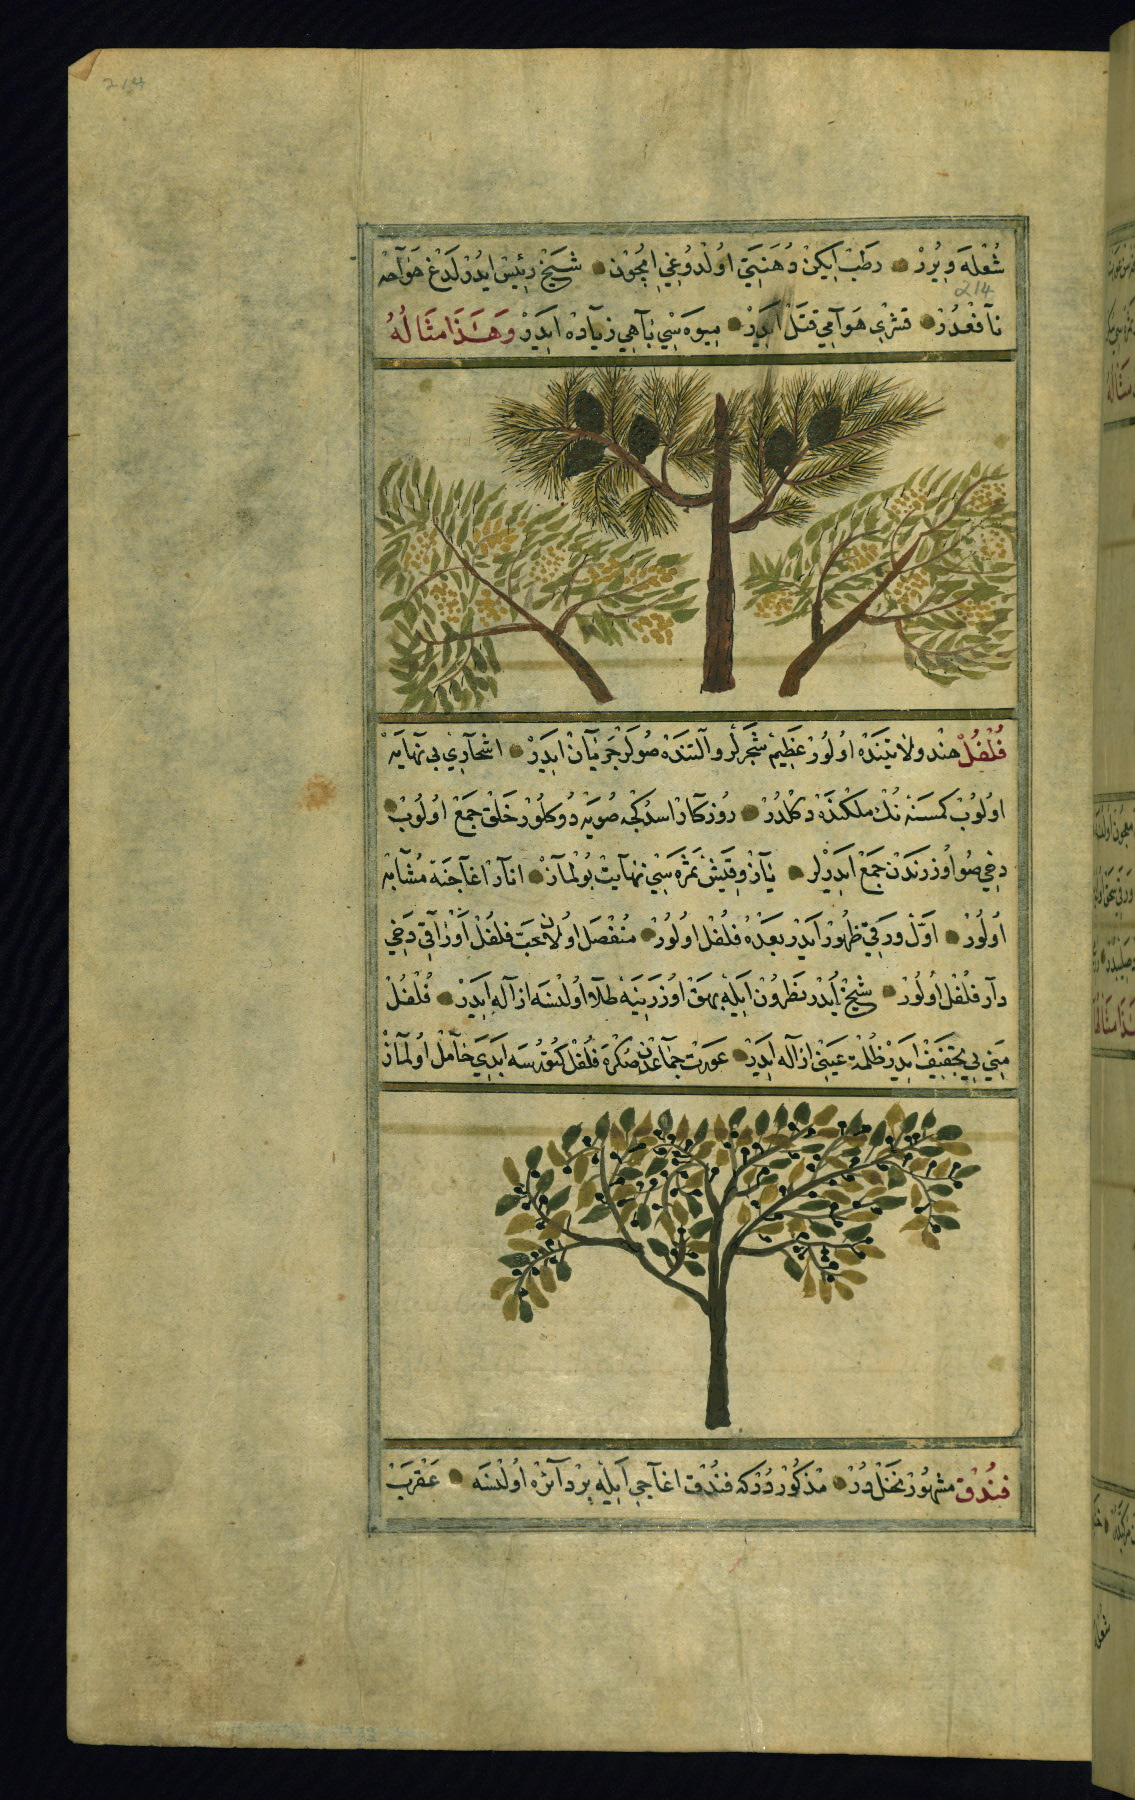 214
شُعْلَه وِيرُرْ رَطَبْ اِيكَنْ دُهَنِيَّتِ اُولْدُوغِي اِيچُونْ شَيْخ رَئِيسْ اِيدُرْ لَدْغِ هَوَامَّه
214
نَافِعْدُرْ قِشْرِي هَوَامِي قَتَلْ اِيدَرْ مِيوَه سِي بَاهِي زِيَادَه اِيدَرْ وَهَذَا مِثَالُهُ
فُلْفُلْ هِنْد وِلَايَتِنْدَه اُولُورْ عَظِيمْ شَجَرْلَرْ وَآلْتِنْدَه صُولَرْ جَرَيَانْ اِيدَرْ اَشْجَارِي بِي نِهَايَه
اُولُوبْ كِمْسَنَه نُكْ مِلْكِنْدَه دَكُلْدُرْ رُوزْكَارْ اَسِيجَكْ صُويَه دُوكُلُورْ خَلْقْ جَمْعْ اُولُوبْ
دَخِي صُو اُوزَرِنْدَنْ جَمْعْ اِيدَرْلَرْ يَازْ وَقِيشْ ثَمَرَه سِي نِهَايَتْ بُولْمَازْ اَنَارْ اَغَاجِنَه مُشَابِه
اُولُورْ اَوَّلْ وَرَقِي ظُهُورْ اِيدَرْ بَعْدَه فُلْفُلْ اُولُورْ مُنْفَصَلْ اُولَانْ حَبّ فُلْفُلْ دَخِي
دَارِ فُلْفُلْ اُولُورْ شَيْخْ اِيدُرْ نَطْرُونْ اِيلَه بَهَقْ اُوزَرِينَه طَلَا اُولِنْسَه اِزَالَه اِيدَرْ فُلْفُلْ
مَنِي يِي تَجْفِيفْ اِيدَرْ ظُلْمَتِ عَيْنِي اِزَالَه اِيدَرْ عَوْرَتْ جِمَاعْدَنْ صُكْرَه فُلْفُلْ كُتُورْسَه اَبَدِي حَامِلْ اُولْمَازْ
فُنْدُقْ مَشْهُورْ نَخَلْدُرْ مَذْكُورْدُرْ كِه فُنْدُقْ اَغَاجِي اِيلَه بِرْ دَائِرَه اُولِنْسَه عَقْرَبْ